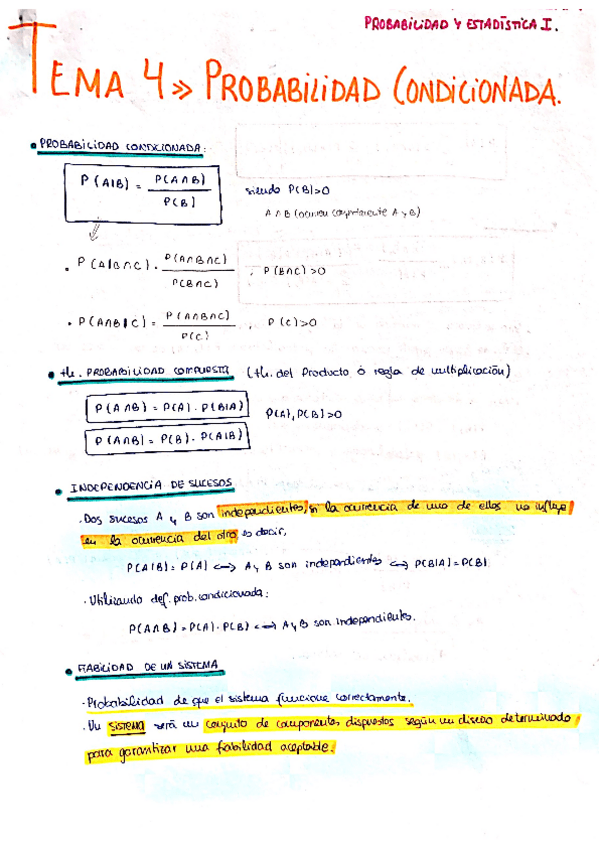 PROBABILIDAD Y ESTADÍSTICA I.
TEMA 4 >> PROBABILIDAD CONDICIONADA.
• PROBABILIDAD CONDICIONADA:
P(A|B) = P(A∩B) / P(B) siendo P(B)>0
A ∩ B (ocurren conjuntamente A y B)
• P(A|B∩C) = P(A∩B∩C) / P(B∩C) , P(B∩C)>0
• P(A∩B|C) = P(A∩B∩C) / P(C) , P(C)>0
• th. PROBABILIDAD COMPUESTA (th. del Producto ó regla de multiplicación)
P(A∩B) = P(A) · P(B|A) P(A), P(B)>0
P(A∩B) = P(B) · P(A|B)
• INDEPENDENCIA DE SUCESOS
· Dos sucesos A y B son independientes, si la ocurrencia de uno de ellos no influye
en la ocurrencia del otro es decir,
P(A|B) = P(A) <-> A y B son independientes <-> P(B|A) = P(B)
· Utilizando def. prob. condicionada:
P(A∩B) = P(A) · P(B) <-> A y B son independientes.
• FIABILIDAD DE UN SISTEMA
· Probabilidad de que el sistema funcione correctamente.
· Un SISTEMA será un conjunto de componentes dispuestos según un diseño determinado
para garantizar una fiabilidad aceptable.